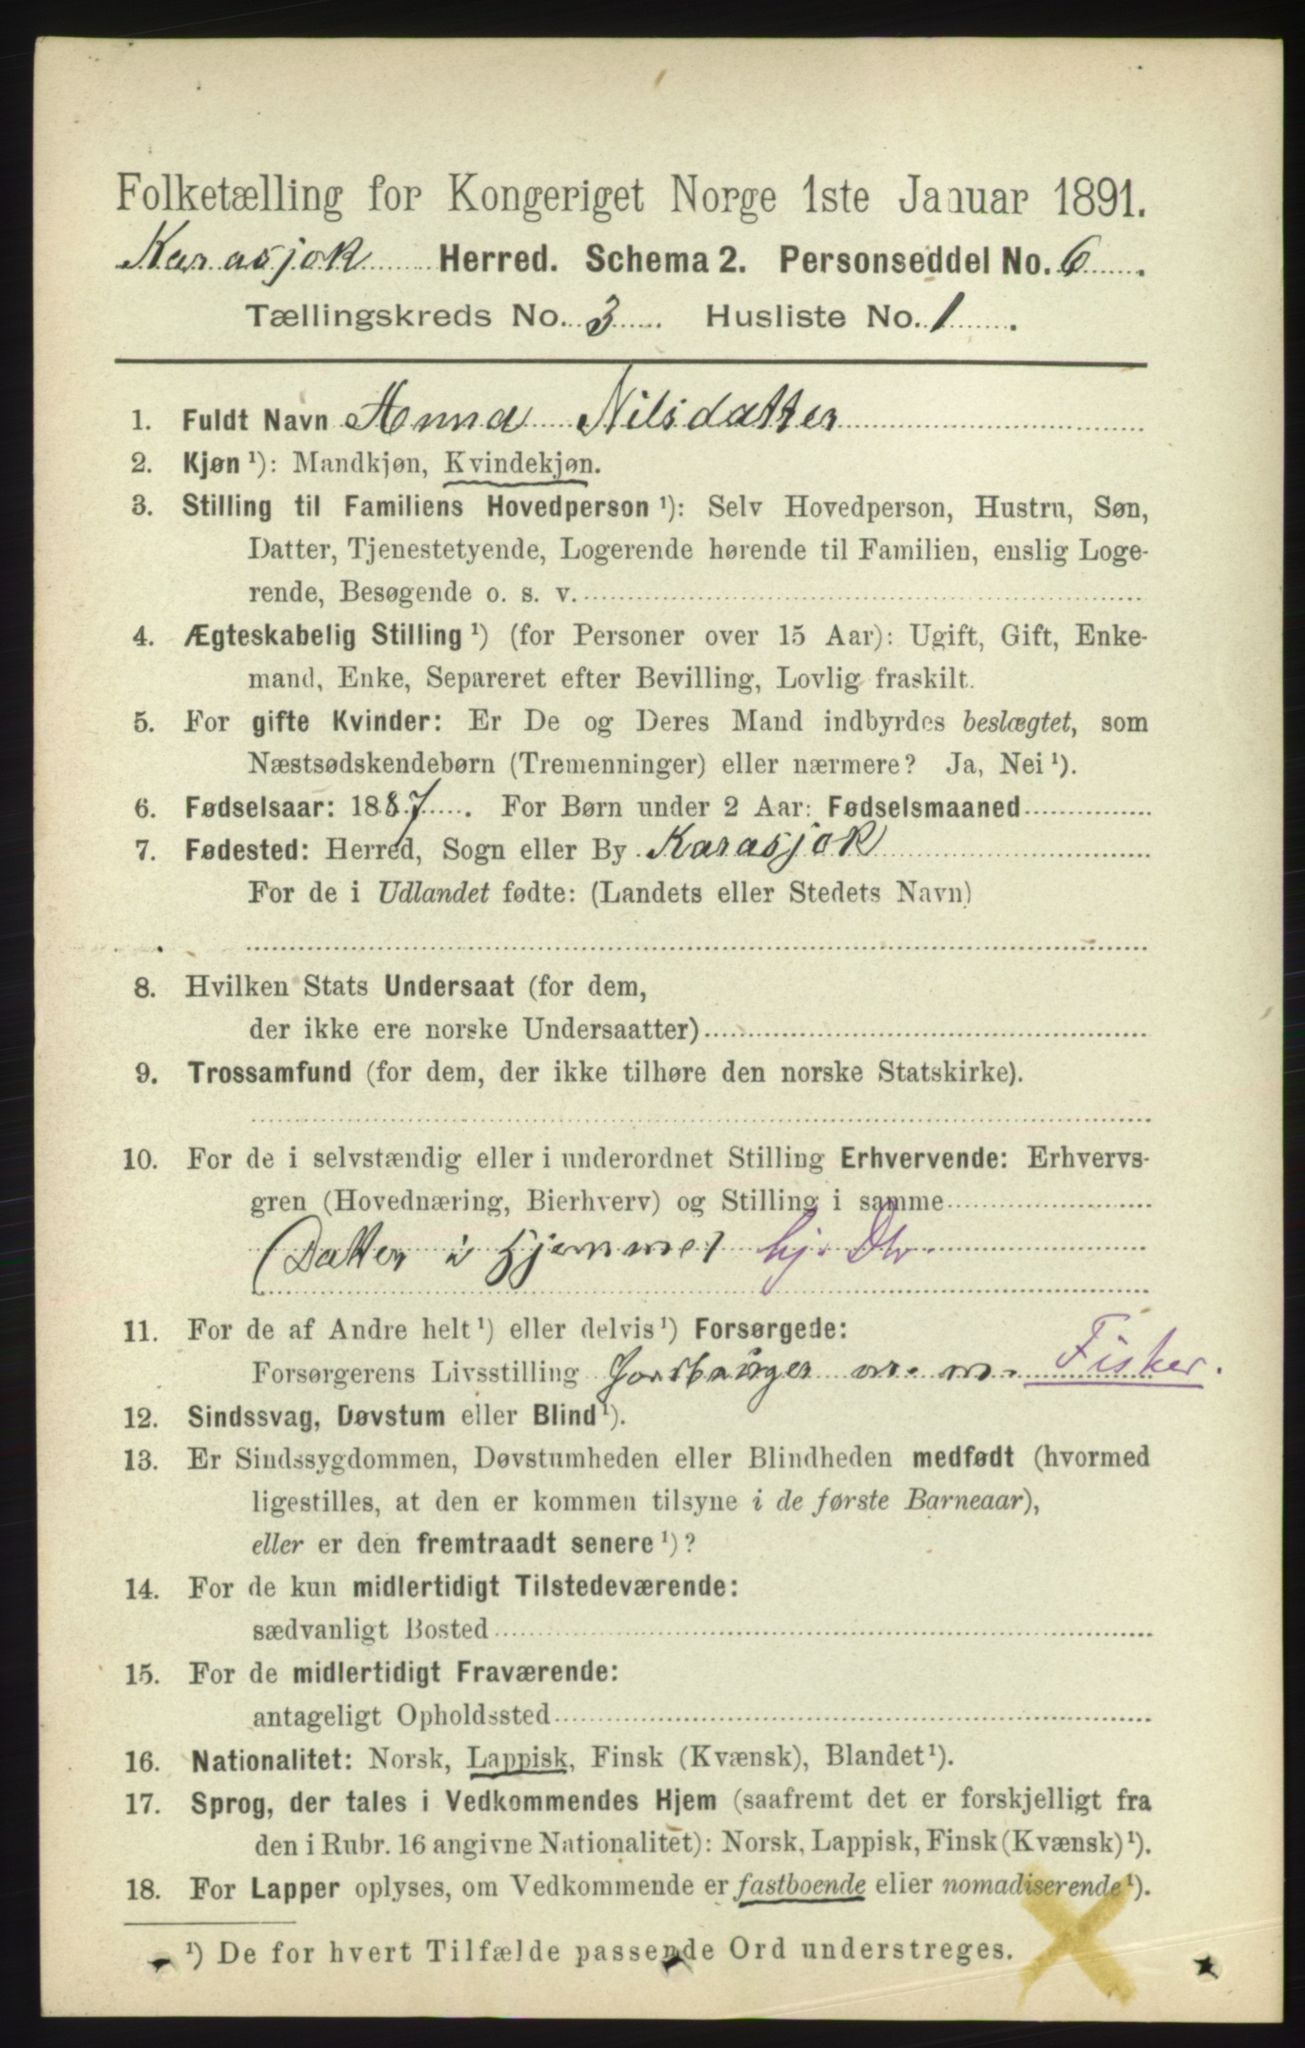 Folketælling for Kongeriget Norge 1ste Januar 1891.
Karasjok Herred. Schema 2. Personseddel No. 6.
Tællingskreds No. 3 Husliste No. 1.
1. Fuldt Navn Anna Nilsdatter
2. Kjøn ¹): Mandkjøn, Kvindekjøn.
3. Stilling til Familiens Hovedperson ¹): Selv Hovedperson, Hustru, Søn,
Datter, Tjenestetyende, Logerende hørende til Familien, enslig Loge-
rende, Besøgende o. s. v.
4. Ægteskabelig Stilling ¹) (for Personer over 15 Aar): Ugift, Gift, Enke-
mand, Enke, Separeret efter Bevilling, Lovlig fraskilt.
5. For gifte Kvinder: Er De og Deres Mand indbyrdes beslægtet, som
Næstsødskendebørn (Tremenninger) eller nærmere? Ja, Nei ¹).
6. Fødselsaar: 1887. For Børn under 2 Aar: Fødselsmaaned
7. Fødested: Herred, Sogn eller By Karasjok
For de i Udlandet fødte: (Landets eller Stedets Navn)
8. Hvilken Stats Undersaat (for dem,
der ikke ere norske Undersaatter)
9. Trossamfund (for dem, der ikke tilhøre den norske Statskirke).
10. For de i selvstændig eller i underordnet Stilling Erhvervende: Erhvervs-
gren (Hovednæring, Bierhverv) og Stilling i samme
Datter i Hjemmet hj. Dtr.
11. For de af Andre helt ¹) eller delvis ¹) Forsørgede:
Forsørgerens Livsstilling m. m. Fisker.
12. Sindssvag, Døvstum eller Blind ¹).
13. Er Sindssygdommen, Døvstumheden eller Blindheden medfødt (hvormed
ligestilles, at den er kommen tilsyne i de første Barneaar),
eller er den fremtraadt senere ¹)?
14. For de kun midlertidigt Tilstedeværende:
sædvanligt Bosted
15. For de midlertidigt Fraværende:
antageligt Opholdssted
16. Nationalitet: Norsk, Lappisk, Finsk (Kvænsk), Blandet ¹).
17. Sprog, der tales i Vedkommendes Hjem (saafremt det er forskjelligt fra
den i Rubr. 16 angivne Nationalitet): Norsk, Lappisk, Finsk (Kvænsk) ¹).
18. For Lapper oplyses, om Vedkommende er fastboende eller nomadiserende ¹).
¹) De for hvert Tilfælde passende Ord understreges.